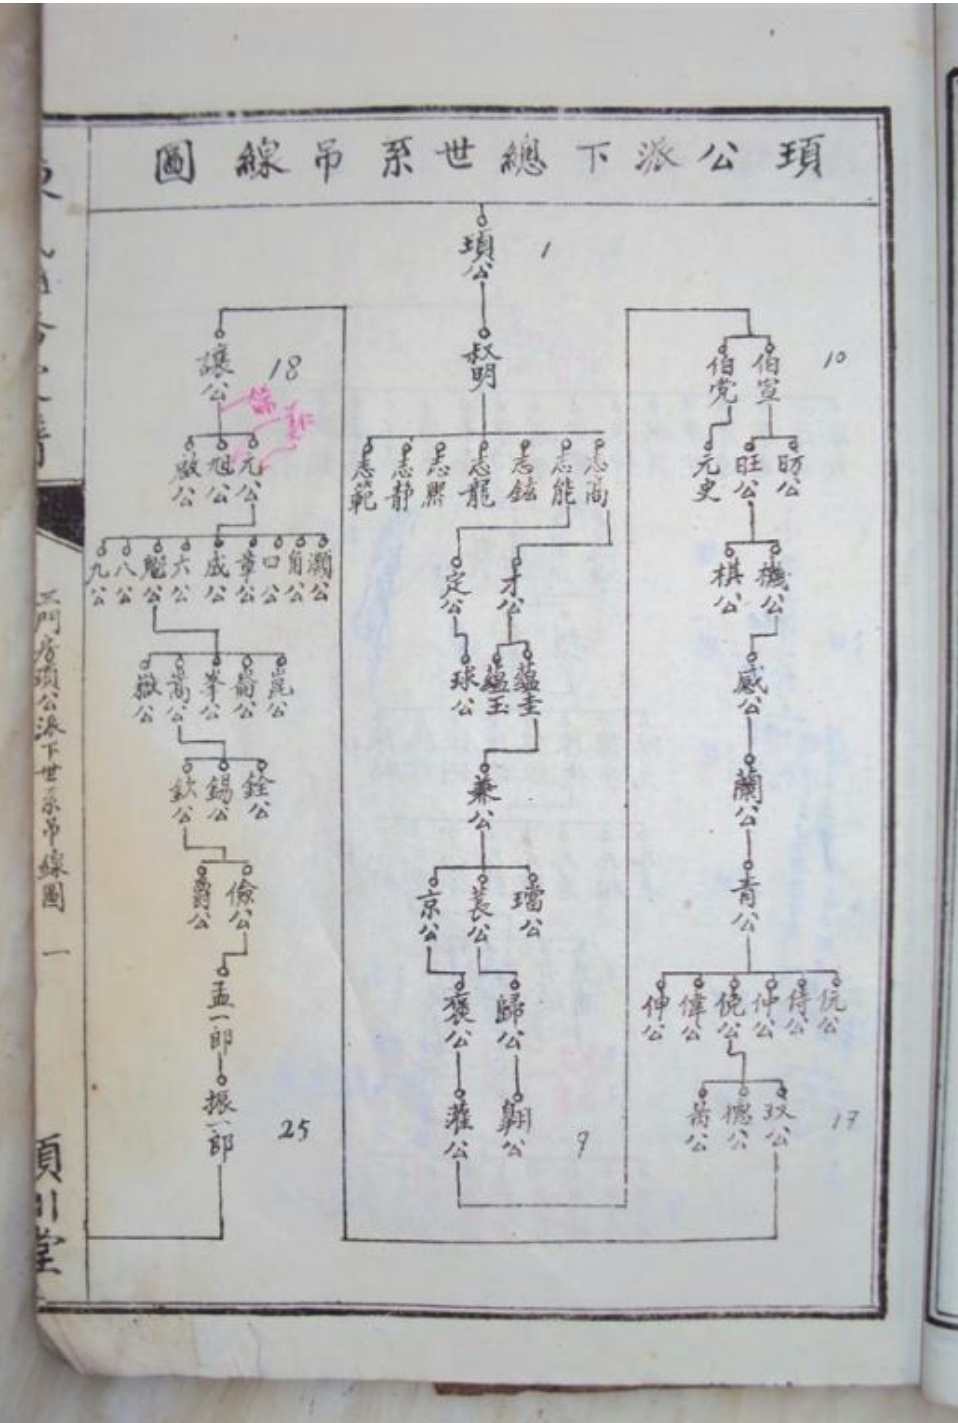 圖線吊系世總下派公頊
頊公
1
叔明
志高
志能
志鉉
志龍
志熙
志靜
志範
才公
定公
蘊圭
蘊玉
球公
兼公
璫公
萇公
京公
歸公
褒公
翱公
灌公
9
伯宣
伯党
10
昉公
旺公
元史
機公
棋公
感公
蘭公
青公
伉公
侍公
仲公
俛公
偉公
伸公
19
讓公
18
元公
旭公
灝公
角公
口公
章公
威公
六公
魁公
八公
九公
崑公
崙公
峯公
嵩公
嶽公
銓公
錫公
欽公
儉公
爵公
孟一郎
振一郎
25
三門房頊公派下世系吊線圖
一
川堂